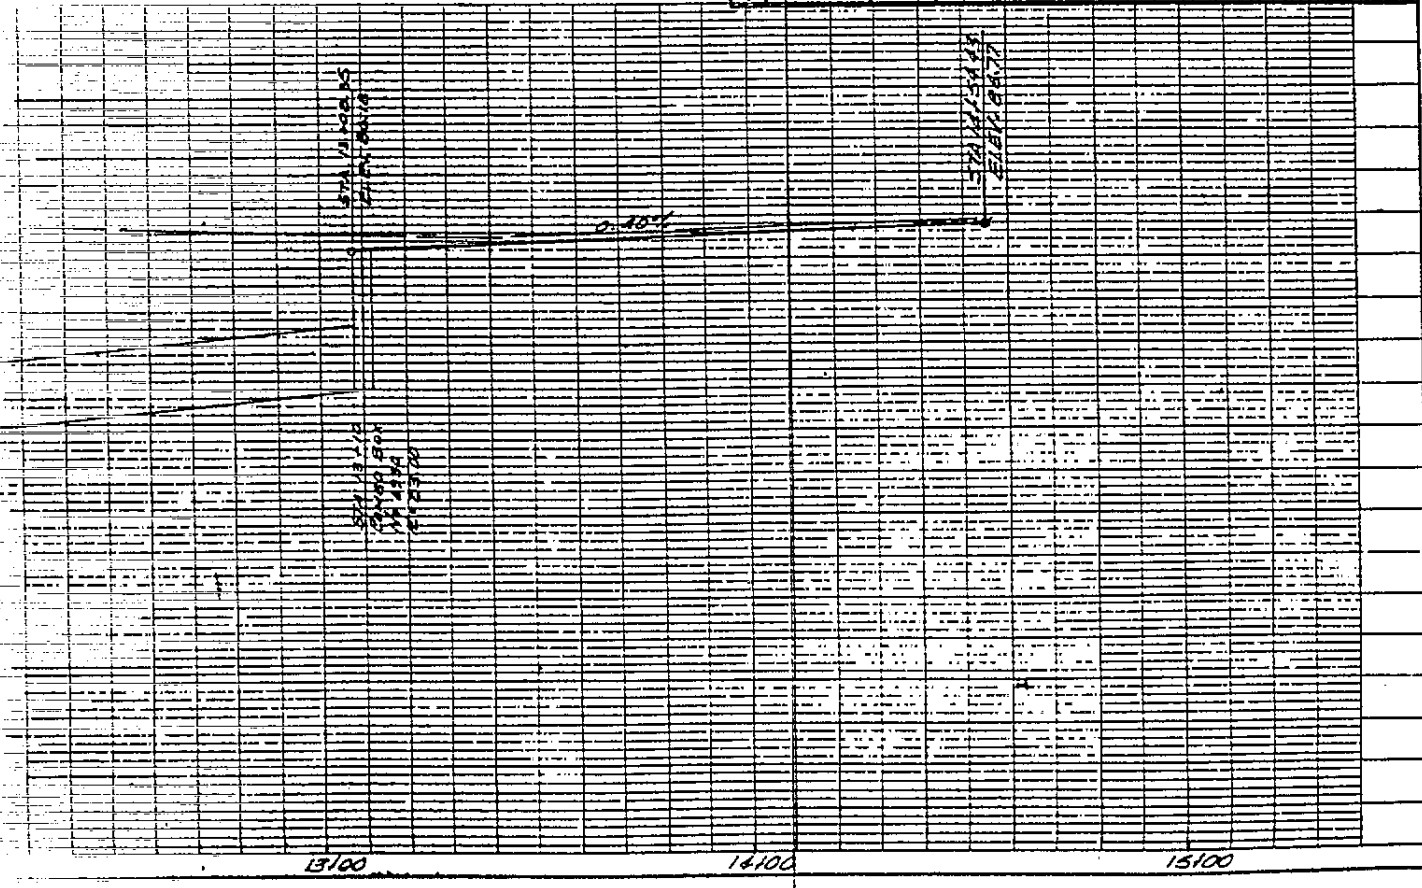 STA 13+08.35
ELEV.
STA 14+54.43
ELEV. 86.77
0.40%
STA 13+10
COMBO BOX
13+00
14+00
15+00